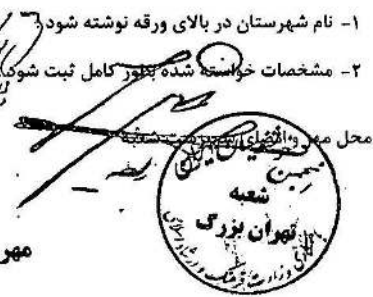 ۱- نام شهرستان در بالای ورقه نوشته شود
۲- مشخصات خواسته شده بطور کامل ثبت شود
محل مهر و امضای سرپرست شعبه
شعبه
تهران بزرگ
مهر